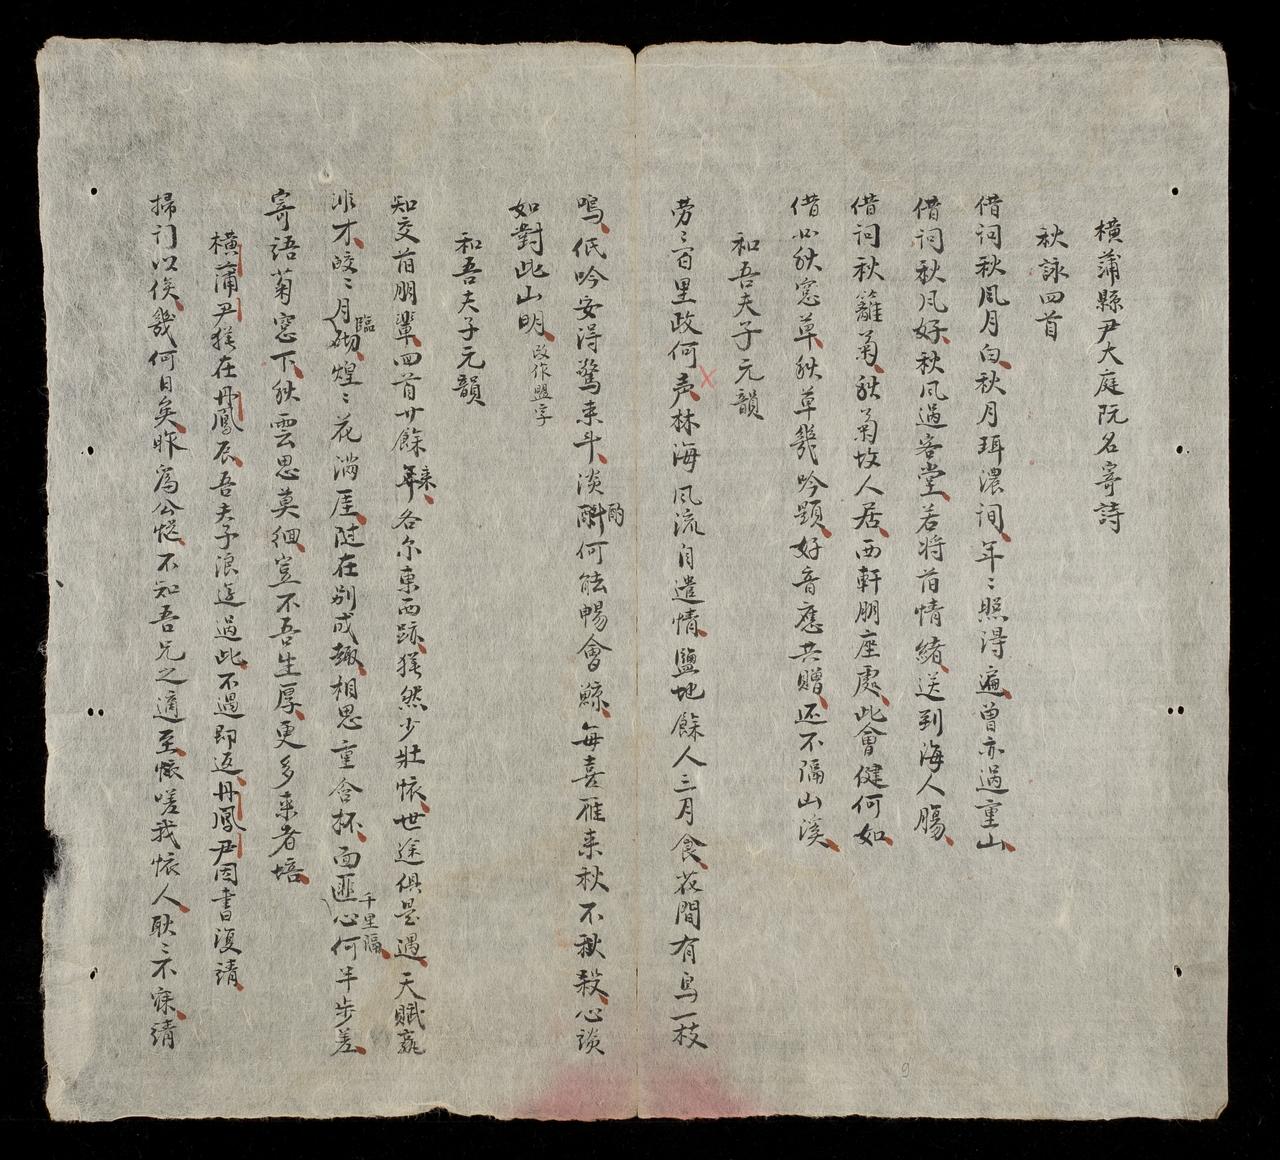 橫蒲縣尹大庭阮名寄詩
秋詠四首
借詞秋風月白秋月珥濃詞年〻照得遍曾亦過重山
借詞秋风好秋风過客堂若将前情緒送到海人腸
借詞秋籬菊秋菊故人居西軒朋座處此會健何如
借必秋窓草秋草幾吟題好音應共贈还不隔山溪
和吾夫子元韻
劳〻百里政何声林海风流自遣情鹽地餘人三月食花間有鳥一枝
鳴低吟安得驚来斗淡酌何能暢會鯨每喜雁来秋不秋殺心談
如對此山明改作盟字
和吾夫子元韻
知交前朋輩四首廿餘来各尔東西跡猶然少壯懷世途俱是遇天賦
非才皎〻月臨砌煌〻花满厓随在别成趣相思重含杯面匪千里隔心何半步差
寄語菊窓下秋雲思莫徊豈不吾生厚更多来者培
橫蒲尹猶在丹鳳辰吾夫子浪遊過此不遇即返丹鳳尹因書復請
掃门以俟幾何日矣昨為公愡不知吾兄之適至懷嗟我懷人耿〻不寐請